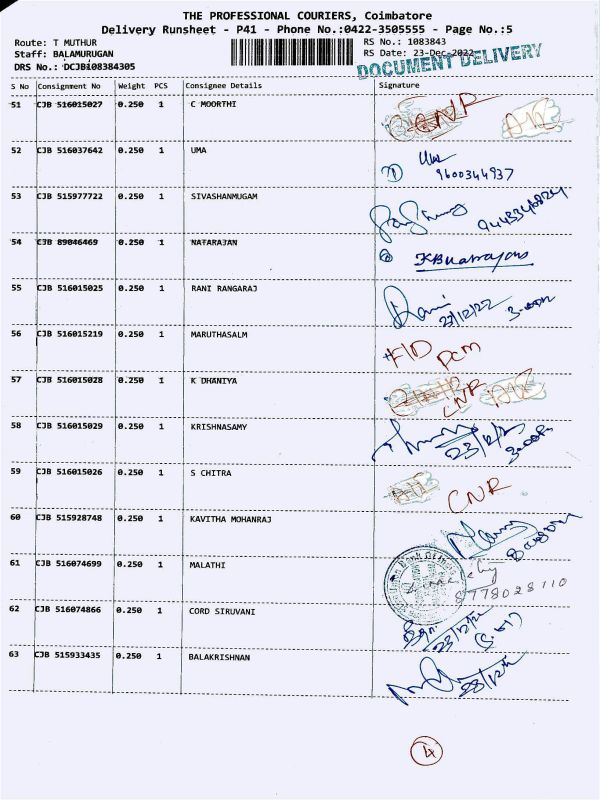 THE PROFESSIONAL COURIERS, Coimbatore
Delivery Runsheet - P41 - Phone No.:0422-3505555 - Page No.:5
Route: T MUTHUR
RS No.: 1083843
Staff: BALAMURUGAN
RS Date: 23-Dec-2022
DRS No.: DCJB108384305
DOCUMENT DELIVERY
S No Consignment No Weight PCS Consignee Details Signature
51 CJB 516015027 0.250 1 C MOORTHI CNR
52 CJB 516037642 0.250 1 UMA Uma
9600344937
53 CJB 515977722 0.250 1 SIVASHANMUGAM
54 CJB 89046469 0.250 1 NATARAJAN
55 CJB 516015025 0.250 1 RANI RANGARAJ Rani
23/12/22
56 CJB 516015219 0.250 1 MARUTHASALM
57 CJB 516015028 0.250 1 K DHANIYA CNR
58 CJB 516015029 0.250 1 KRISHNASAMY
59 CJB 516015026 0.250 1 S CHITRA CNR
60 CJB 515928748 0.250 1 KAVITHA MOHANRAJ
61 CJB 516074699 0.250 1 MALATHI
8778028110
62 CJB 516074866 0.250 1 CORD SIRUVANI
63 CJB 515933435 0.250 1 BALAKRISHNAN